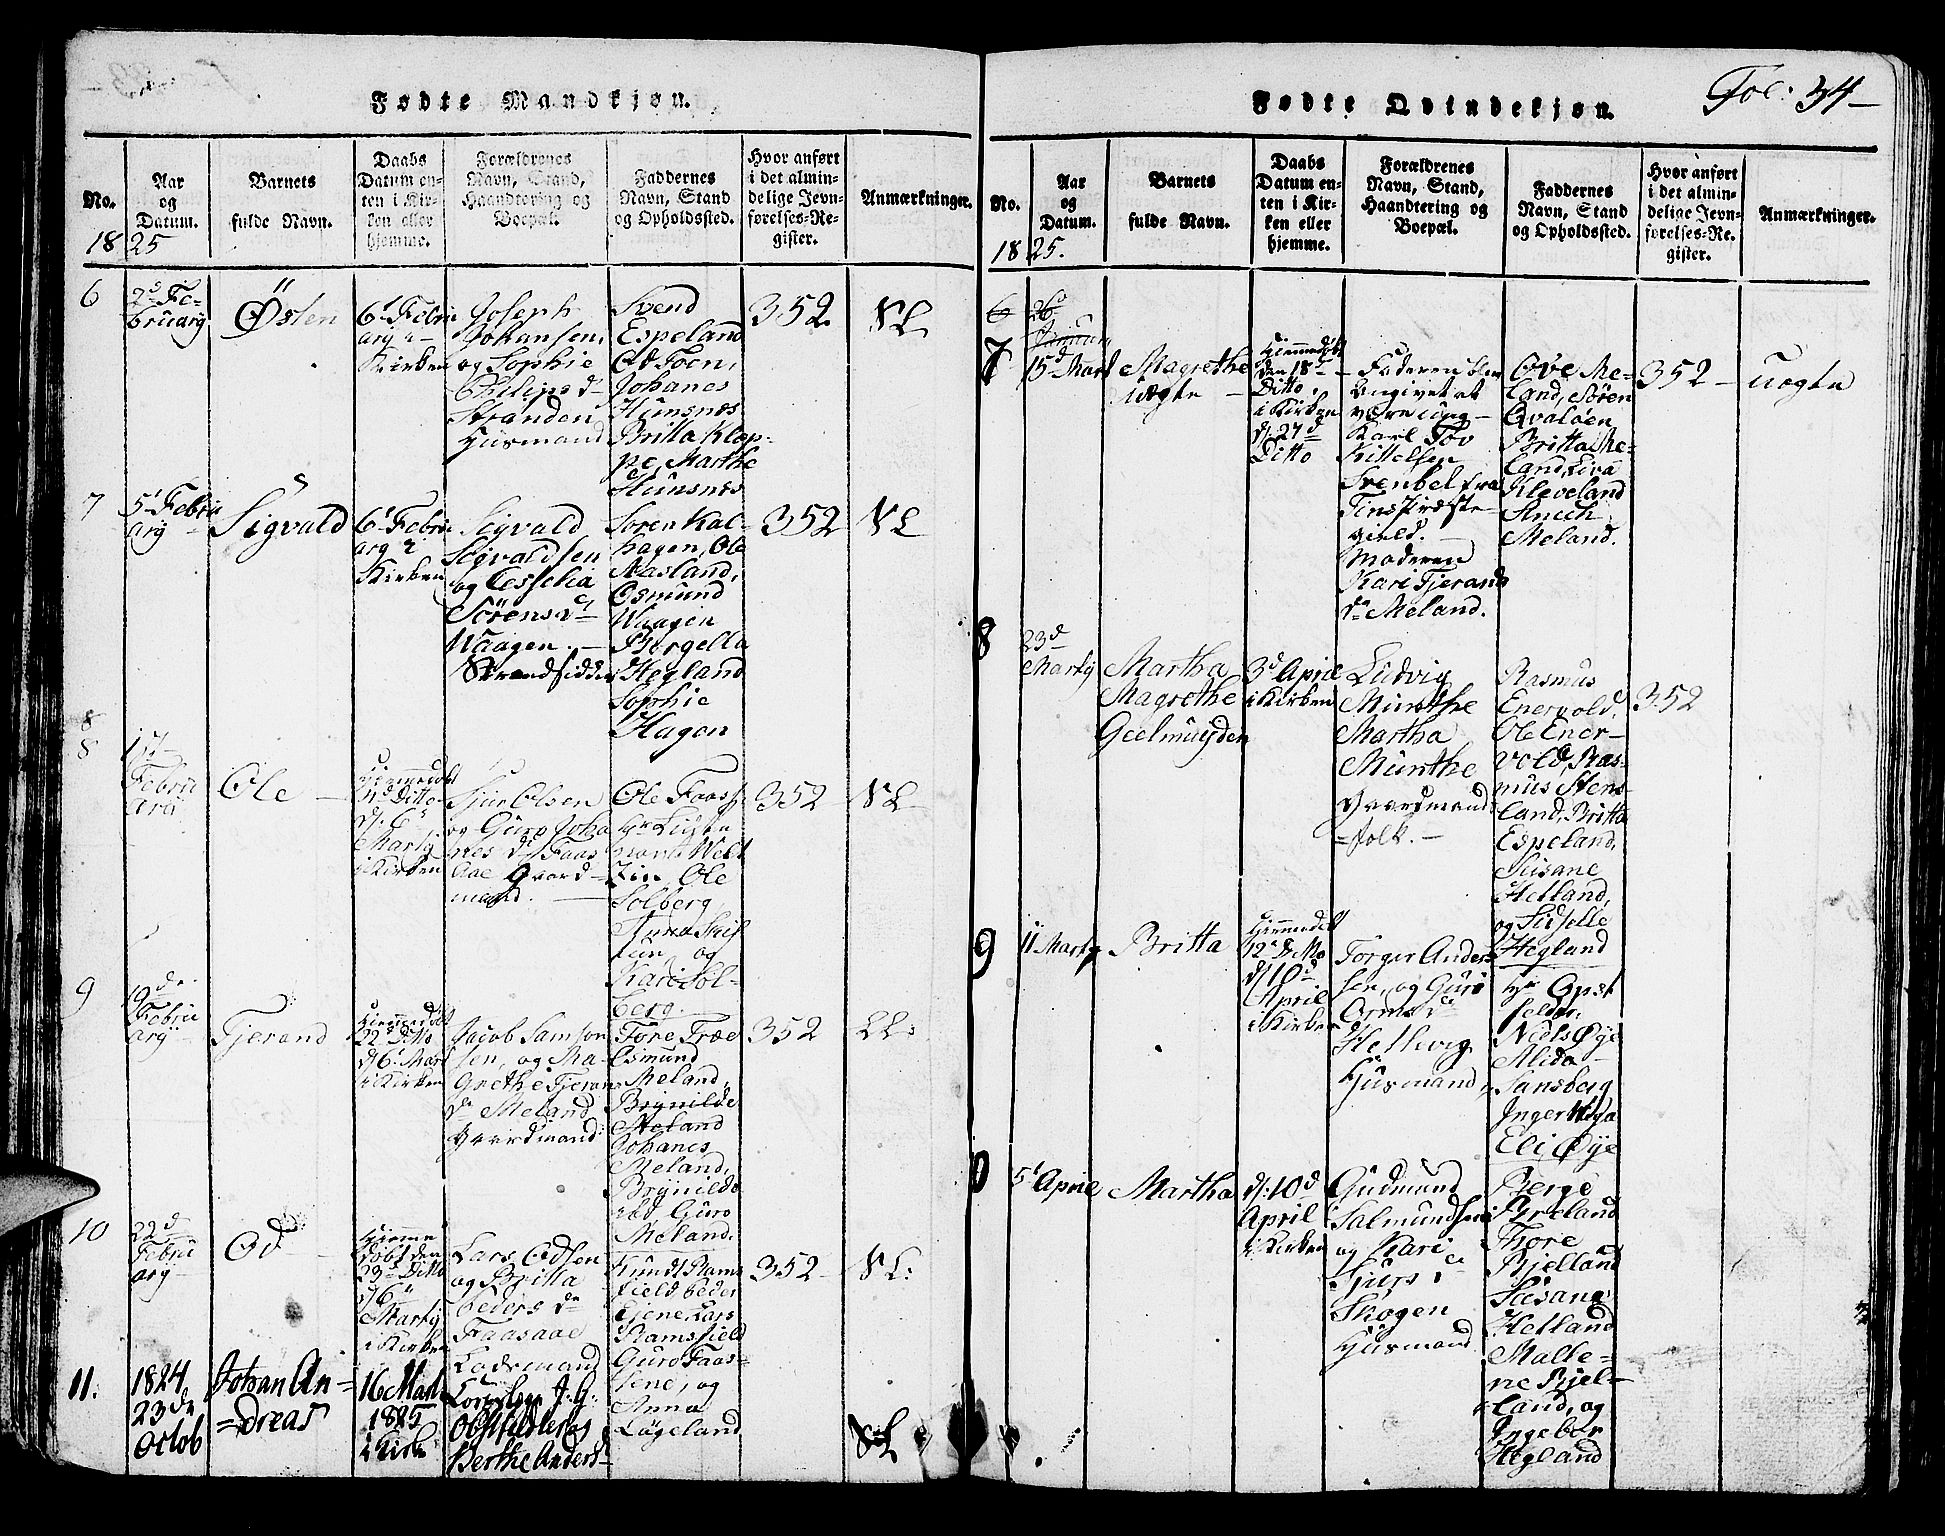 Fol: 34 –
Fødte Mandkjøn.
No.
Aar
og
Datum.
Barnets
fulde Navn.
Daabs
Datum en-
ten i Kir-
ken eller
hjemme.
Forældrenes
Navn, Stand,
Haandtering og
Boepæl.
Faddernes
Navn, Stand
og Opholdssted.
Hvor anført
i det almin-
delige Jevn-
førelses-Re-
gister.
Anmærkninger.
1825
6
2d Fe-
bruary
Östen
6t Febru
ary i
Kirken
Joseph
Johansen,
og Sophie
Philips d
Stranden
Huusmand
Svend
Espeland
Od Toen,
Johanes
Hunsnes
Britta Klop-
pe, Marthe
Hunsnes
352.
VL
7
5t Febru
ary
Sigvald
6t Febru
ary i
Kirken
Sigvald
Sigvaldsen
og Cesselia
Sörens d
Waagen.
Strandsidder
Soren Kal-
hagen, Ole
Aasland,
Osmund
Waagen
Bergella
Hegland
Sophie
Hagen
352
VL
8
8
17
Febru
ary
Ole
Hjemmedøbt
Ditto
d: 6
Marty
i Kirken
Sjur Olsen
og Guro Joha
nes d Faas
Aae Gaard-
mand.
Ole Faass
Hr Lieute
nant Welt
zin Ole
Solberg
Anna Skif
tun og
Kari Sol-
berg.
352
VL
9
19de
Febru
ary
Tjerand
Hjemmedøbt
22d Ditto
d 6t Mart
i Kirken
Jacob Samson
sen, og Ma-
Grethe Tjeran
d Meland
Gaardmand
Tore Træe
Osmund
Meland,
Brynilde
Meland
Johanes
Meland,
Brynilde
og Guro
Meland.
352
LL:
10
22d
Febru
ary
Od
Hjemme
døbt den
23d Ditto
d 6
Marty
i Kirken
Lars Odsen
og Britta
Peders d
Faasaae
Lodsmand
Knudt Rams
field Peder
Ejene, Lars
Ramsfield
Guro Faas-
sene, og
Anna
Løgeland
352
VL:
11.
1824
23de
Octob
Johan An=
=dreas
16 Mart
1825
i Kirk
J: G:
Obstfelder og
Berthe Anders
VL
Fødte Qvindekjøn.
No.
Aar
og
Datum.
Barnets
fulde Navn.
Daabs
Datum en-
ten i Kir-
ken eller
hjemme.
Forældrenes
Navn, Stand,
Haandtering og
Boepæl.
Faddernes
Navn, Stand
og Opholdssted.
Hvor anført
i det almin-
delige Jevn-
førelses-Re-
gister.
Anmærkninger.
1825.
6
26
7
15d Mart
Magrethe
Uægte
Hjemmedøbt
den 18
Ditto,
i Kirken
d: 27d
Ditto
Faderen blev
angivet at
være ung-
Karl Tov
Kittelsen
Svenbel fra
Tins Præste-
gield.
Moderen
Kari Tjerands
d Meland.
Ove Me-
land, Søren
Qvaløen
Britta Me-
land, Liva
Kleveland
Anich
Meland.
352
uægte
8
23d
Marty
Martha
Magrethe
Geelmuyden
3d April
i Kirken
Ludvig
Minthe
Martha
Münthe
Gaardmands
=folk.
Rasmus
Enervold,
Ole Ener-
vold, Ras-
mus Stens
land, Britta
Espeland,
Susane
Hetland,
og Sidselle
Hegland
352
9
11 Marty
Britta
Hjemmedøbt
12 Ditto
d 10d
April
i Kirken
Torger Anders
sen, og Guro
Orms d
Hellevig
Huusmand
Hr Opst
felder,
Niels Øye
Alida
Sansberg
Inger Høya
Eli Øye
0
5t April
Martha
d: 10d
April
i Kirken
Gudmund
Salmundsen
og Kari
Sjurs d
Skogen
Huusmand
Berge
Birkeland
Thore
Bjelland
Susana
Hetland
Malle-
ne Bjel-
land, og
Ingebor
Hegland